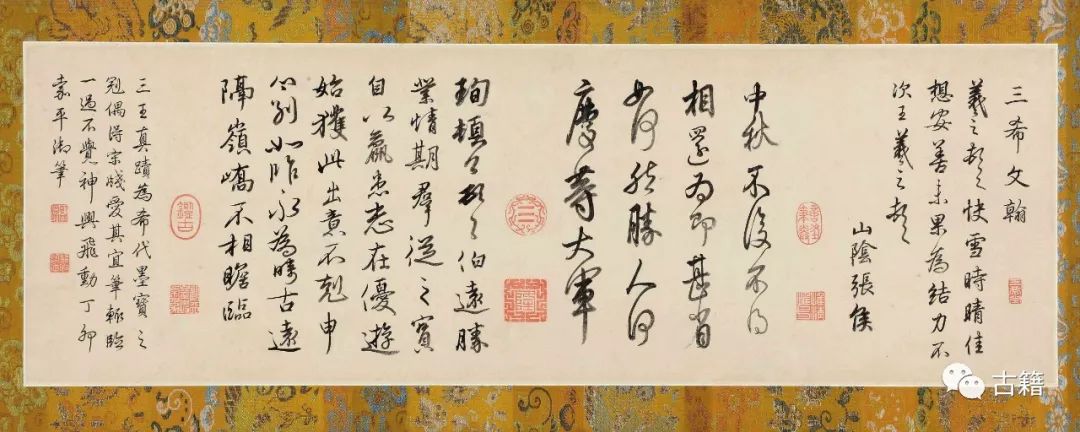 三希文翰
羲之頓首快雪時晴佳
想安善未果為結力不
次王羲之頓首
山陰張侯
中秋不復不得
相還為即甚省
如何然勝人何
慶等大軍
珣頓首頓首伯遠勝
業情期羣從之寶
自以羸患志在優遊
始獲此出意不剋申
分別如昨永為疇古遠
隔嶺嶠不相瞻臨
三王真蹟為希代墨寶之
冠偶得宋牋愛其宜筆輒臨
一過不覺神興飛動丁卯
嘉平御筆
鑑古
古籍